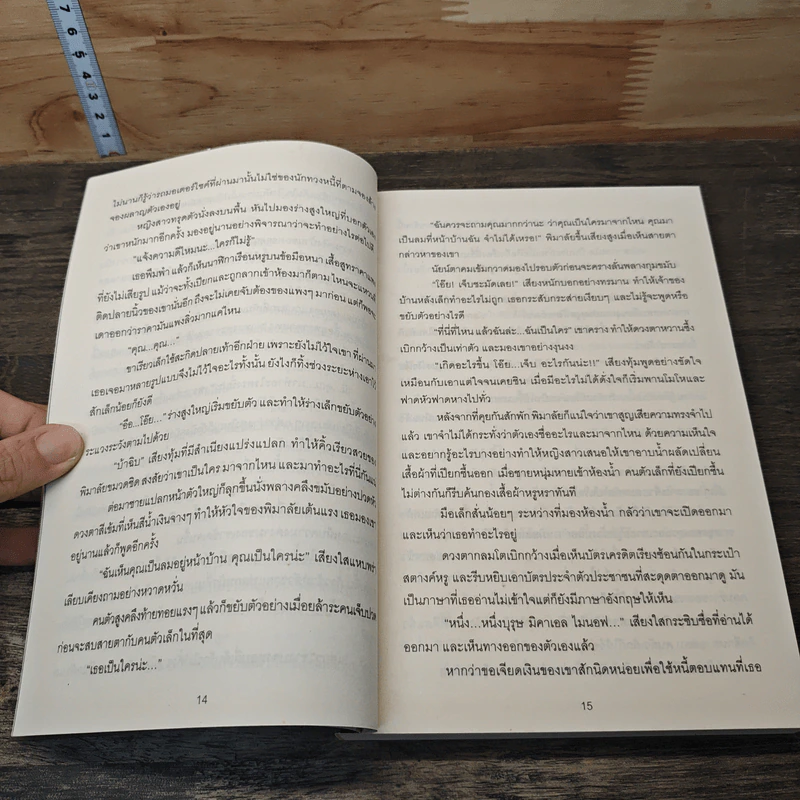 7
6
5
4
3
2
1
ไม่นานก็รู้ว่ารถมอเตอร์ไซค์ที่ผ่านมานั้นไม่ใช่ของนักทวงหนี้ที่ตามจองล้าง
จองผลาญตัวเองอยู่
หญิงสาวทรุดตัวนั่งลงบนพื้น หันไปมองร่างสูงใหญ่ที่บอกตัวเอง
ว่าเขาหนักมากอีกครั้ง มองอยู่นานอย่างพิจารณาว่าจะทำอย่างไรต่อไปดี
“แจ้งความดีไหมนะ...ใครก็ไม่รู้”
เธอพึมพำ แล้วก็เห็นนาฬิกาเรือนหรูบนข้อมือหนา เสื้อสูทราคาแพง
ที่ยังไม่เสียรูป แม้ว่าจะทั้งเปียกและถูกลากเข้าห้องมาก็ตาม ไหนจะแหวน
ติดปลายนิ้วของเขานั่นอีก ถึงจะไม่เคยจับต้องของแพงๆ มาก่อน แต่ก็พอจะ
เดาออกว่าราคามันแพงลิ่วมากแค่ไหน
“คุณ...คุณ...”
ขาเรียวเล็กใช้สะกิดปลายเท้าอีกฝ่าย เพราะยังไม่ไว้ใจเขา ที่ผ่านมา
เธอเจอมาหลายรูปแบบจึงไม่ไว้ใจอะไรทั้งนั้น ยังไงก็ทิ้งช่วงระยะห่างเอาไว้
สักเล็กน้อยก็ยังดี
“อือ...โอ๊ย...” ร่างสูงใหญ่เริ่มขยับตัว และทำให้ร่างเล็กขยับตัวอย่าง
ระแวงระวังตามไปด้วย
“บ้าฉิบ” เสียงทุ้มที่มีสำเนียงแปร่งแปลก ทำให้คิ้วเรียวสวยของ
พิมาลัยขมวดชิด สงสัยว่าเขาเป็นใคร มาจากไหน และมาทำอะไรที่นี่กันแน่
ต่อมาชายแปลกหน้าตัวใหญ่ก็ลุกขึ้นนั่งพลางคลึงขมับอย่างปวดหัว
ดวงตาสีเข้มที่เห็นสีน้ำเงินจางๆ ทำให้หัวใจของพิมาลัยเต้นแรง เธอมองเขา
อยู่นานแล้วก็พูดอีกครั้ง
“ฉันเห็นคุณเป็นลมอยู่หน้าบ้าน คุณเป็นใครน่ะ” เสียงใสแหบพร่า
เลียบเคียงถามอย่างหวาดหวั่น
คนตัวสูงคลึงท้ายทอยแรงๆ แล้วก็ขยับตัวอย่างเมื่อยล้าระคนเจ็บปวด
ก่อนจะสบสายตากับคนตัวเล็กในที่สุด
“เธอเป็นใครน่ะ...”
14
“ฉันควรจะถามคุณมากกว่านะ ว่าคุณเป็นใครมาจากไหน คุณมา
เป็นลมที่หน้าบ้านฉัน จำไม่ได้เหรอ!” พิมาลัยขึ้นเสียงสูงเมื่อเห็นสายตา
กล่าวหาของเขา
นัยน์ตาคมเข้มกวาดมองไปรอบตัวก่อนจะครางลั่นพลางกุมขมับ
“โอ๊ย! เจ็บชะมัดเลย!” เสียงหนักบอกอย่างทรมาน ทำให้เจ้าของ
บ้านหลังเล็กทำอะไรไม่ถูก เธอกระสับกระส่ายเงียบๆ และไม่รู้จะพูดหรือ
ขยับตัวอย่างไรดี
“ที่นี่ที่ไหน แล้วฉันล่ะ...ฉันเป็นใคร” เขาคราง ทำให้ดวงตาหวานซึ้ง
เบิกกว้างเป็นเท่าตัว และมองเขาอย่างงุนงง
“เกิดอะไรขึ้น โอ๊ย...เจ็บ อะไรกันน่ะ!!” เสียงทุ้มพูดอย่างขัดใจ
เหมือนกับเอาแต่ใจจนเคยชิน เมื่อมีอะไรไม่ได้ดั่งใจก็เริ่มพานโมโหและ
ฟาดหัวฟาดหางไปทั่ว
หลังจากที่คุยกันสักพัก พิมาลัยก็แน่ใจว่าเขาสูญเสียความทรงจำไป
แล้ว เขาจำไม่ได้กระทั่งว่าตัวเองชื่ออะไรและมาจากไหน ด้วยความเห็นใจ
และอยากรู้อะไรบางอย่างทำให้หญิงสาวเสนอให้เขาอาบน้ำผลัดเปลี่ยน
เสื้อผ้าที่เปียกชื้นออก เมื่อชายหนุ่มหายเข้าห้องน้ำ คนตัวเล็กที่ยังเปียกชื้น
ไม่ต่างกันก็รีบค้นกองเสื้อผ้าหรูหราทันที
มือเล็กสั่นน้อยๆ ระหว่างที่มองห้องน้ำ กลัวว่าเขาจะเปิดออกมา
และเห็นว่าเธอทำอะไรอยู่
ดวงตากลมโตเบิกกว้างเมื่อเห็นบัตรเครดิตเรียงซ้อนกันในกระเป๋า
สตางค์หรู และรีบหยิบเอาบัตรประจำตัวประชาชนที่สะดุดตาออกมาดู มัน
เป็นภาษาที่เธออ่านไม่เข้าใจแต่ก็ยังมีภาษาอังกฤษให้เห็น
“หนึ่ง...หนึ่งบุรุษ มิคาเอล ไมนอฟ...” เสียงใสกระซิบชื่อที่อ่านได้
ออกมา และเห็นทางออกของตัวเองแล้ว
หากว่าขอเจียดเงินของเขาสักนิดหน่อยเพื่อใช้หนี้ตอบแทนที่เธอ
15